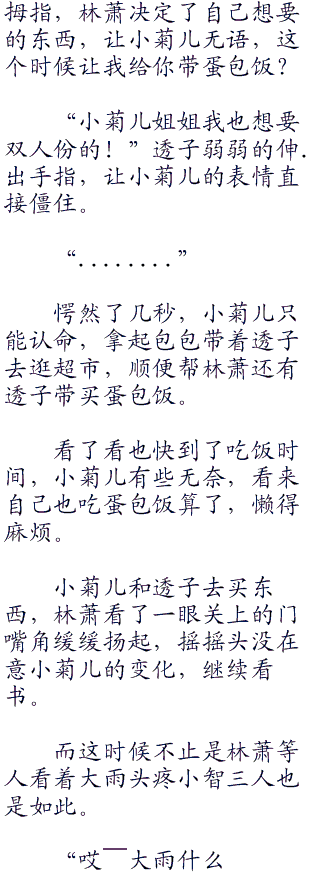 拇指，林萧决定了自己想要
的东西，让小菊儿无语，这
个时候让我给你带蛋包饭？
“小菊儿姐姐我也想要
双人份的！”透子弱弱的伸.
出手指，让小菊儿的表情直
接僵住。
“........”
愕然了几秒，小菊儿只
能认命，拿起包包带着透子
去逛超市，顺便帮林萧还有
透子带买蛋包饭。
看了看也快到了吃饭时
间，小菊儿有些无奈，看来
自己也吃蛋包饭算了，懒得
麻烦。
小菊儿和透子去买东
西，林萧看了一眼关上的门
嘴角缓缓扬起，摇摇头没在
意小菊儿的变化，继续看
书。
而这时候不止是林萧等
人看着大雨头疼小智三人也
是如此。
“哎￣大雨什么